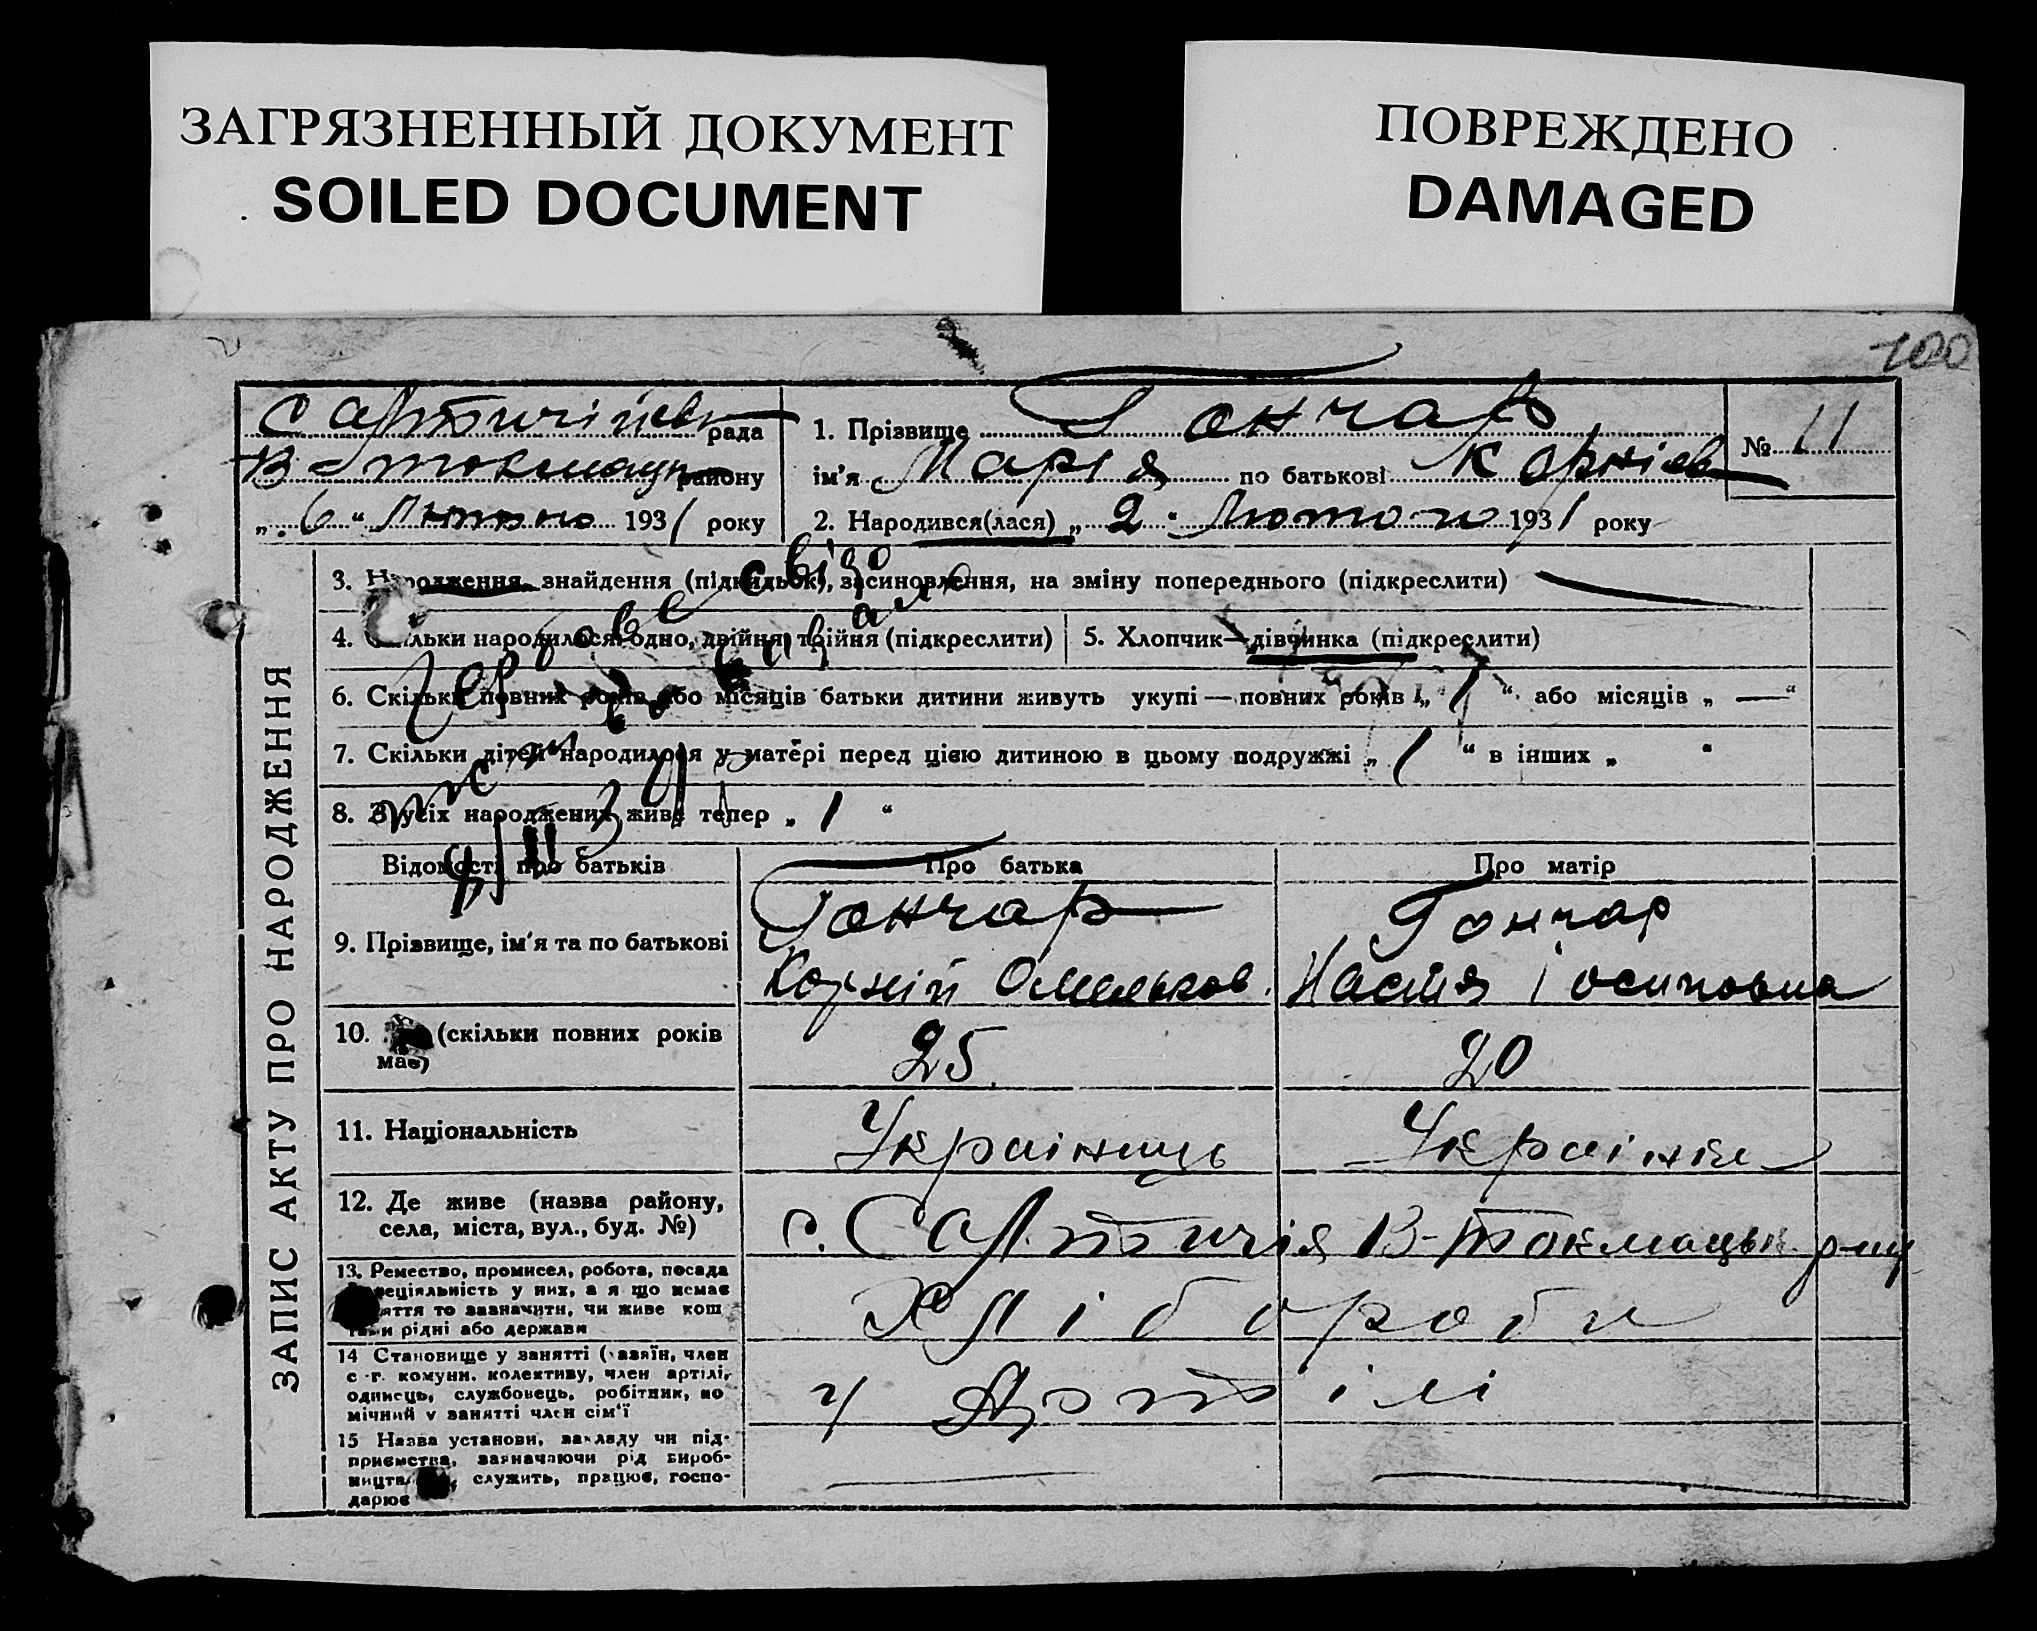 ЗАГРЯЗНЕННЫЙ ДОКУМЕНТ
SOILED DOCUMENT
ПОВРЕЖДЕНО
DAMAGED
100
рада
В-Токмацьк району
„ 6 “ Лютого 1931 року
1. Прізвище Гончар
ім'я Марія по батькові Корнієв
2. Народився(лася) „ 2 “ Лютого 1931 року
№ 11
ЗАПИС АКТУ ПРО НАРОДЖЕННЯ
3. Народження, знайдення (підкидьок), засиновлення, на зміну попереднього (підкреслити)
4. Скільки народилося: одно, двійня, трійня (підкреслити)
5. Хлопчик—дівчинка (підкреслити)
6. Скільки повних років або місяців батьки дитини живуть укупі — повних років „ 1 “ або місяців „ — “
7. Скільки дітей народилося у матері перед цією дитиною в цьому подружжі „ 1 “ в інших „ “
8. З усіх народжених живе тепер „ 1 “
Відомості про батьків
Про батька
Про матір
9. Прізвище, ім'я та по батькові
Гончар
Корній Омельков.
Гончар
Настя Іосиповна
10. (скільки повних років
має)
25
20
11. Національність
Українець
Українка
12. Де живе (назва району,
села, міста, вул., буд. №)
с. Салтичія В-Токмацьк р-ну
13. Ремество, промисел, робота, посада
спеціяльність у них, а я що немає
заняття то зазначити, чи живе кош
тами рідні або держави
Хлібороби
14 Становище у занятті (хазяїн, член
с.-г. комуни, колективу, член артілі,
одинець, службовець, робітник, по
мічний у занятті член сім'ї
у Артілі
15 Назва установи, закладу чи під-
приємства, зазначаючи рід вироб-
ництва, служить, працює, госпо-
дарює